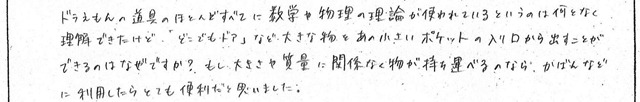 ドラえもんの道具のほとんどすべてに数学や物理の理論が使われているというのは何となく
理解できたけど、「どこでもドア」など大きな物をあの小さいポケットの入り口から出すことが
できるのはなぜですか？もし大きさや質量に関係なく物が持ち運べるのなら、かばんなど
に利用したらとても便利だと思いました。